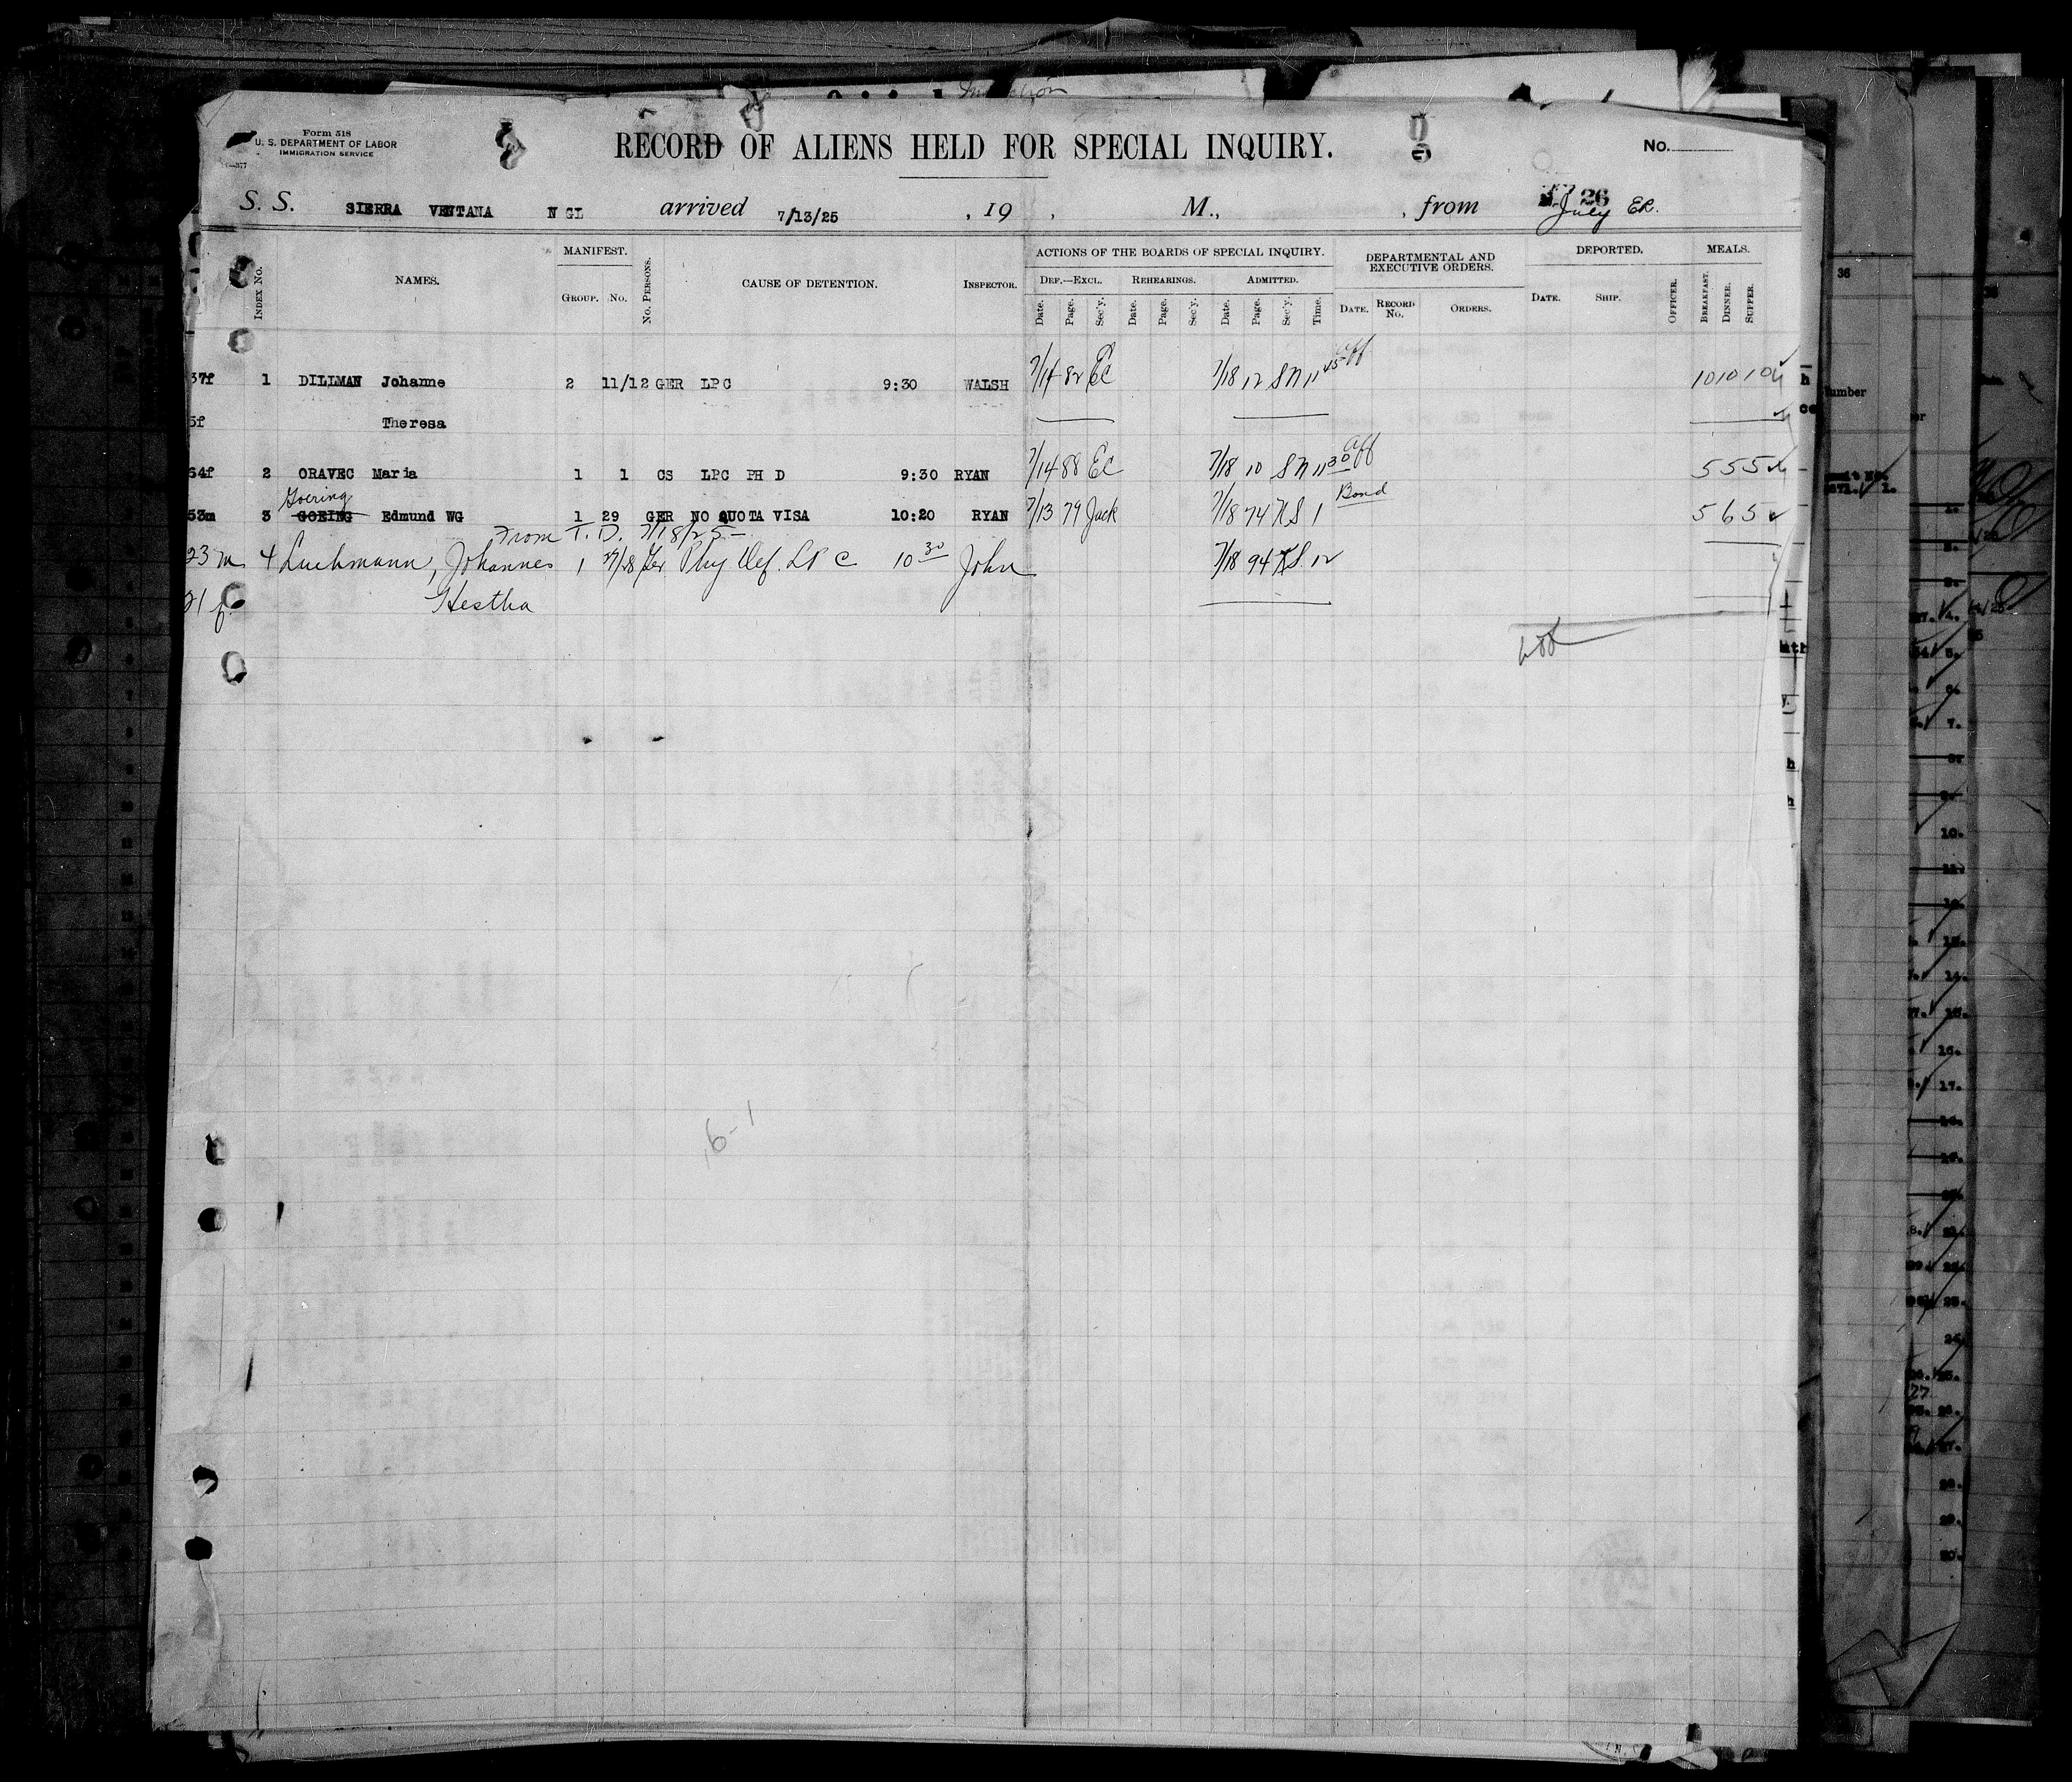 Form 518
U. S. DEPARTMENT OF LABOR
IMMIGRATION SERVICE
RECORD OF ALIENS HELD FOR SPECIAL INQUIRY.
No.
S. S. SIERRA VENTANA N GL arrived 7/13/25 , 19 , M., , from 26 July ER.
INDEX No. NAMES. MANIFEST. GROUP. No. No. PERSONS. CAUSE OF DETENTION. INSPECTOR.
ACTIONS OF THE BOARDS OF SPECIAL INQUIRY. DEF.—EXCL. REHEARINGS. ADMITTED.
Date. Page. Sec'y. Date. Page. Sec'y. Date. Page. Sec'y. Time.
DEPARTMENTAL AND EXECUTIVE ORDERS. DATE. RECORD No. ORDERS.
DEPORTED. DATE. SHIP. OFFICER.
MEALS. BREAKFAST. DINNER. SUPPER.
37f 1 DILLMAN Johanne 2 11/12 GER LPC 9:30 WALSH 7/14 82 EC 7/18 12 SN 11 45 aff 10 10 10
5f Theresa
64f 2 ORAVEC Maria 1 1 CS LPC PH D 9:30 RYAN 7/14 88 EC 7/18 10 SN 11 30 aff 5 5 5
Goering
53m 3 GOEING Edmund WG 1 29 GER NO QUOTA VISA 10:20 RYAN 7/13 79 Jack 7/18 74 KS 1 Bond 5 6 5
From T. D. 7/18/25
23 m 4 Luehmann, Johannes 1 27/28 Ger Phy Def. LPC 10 30 John 7/18 94 KS 12
21 f. Hestha
16-1